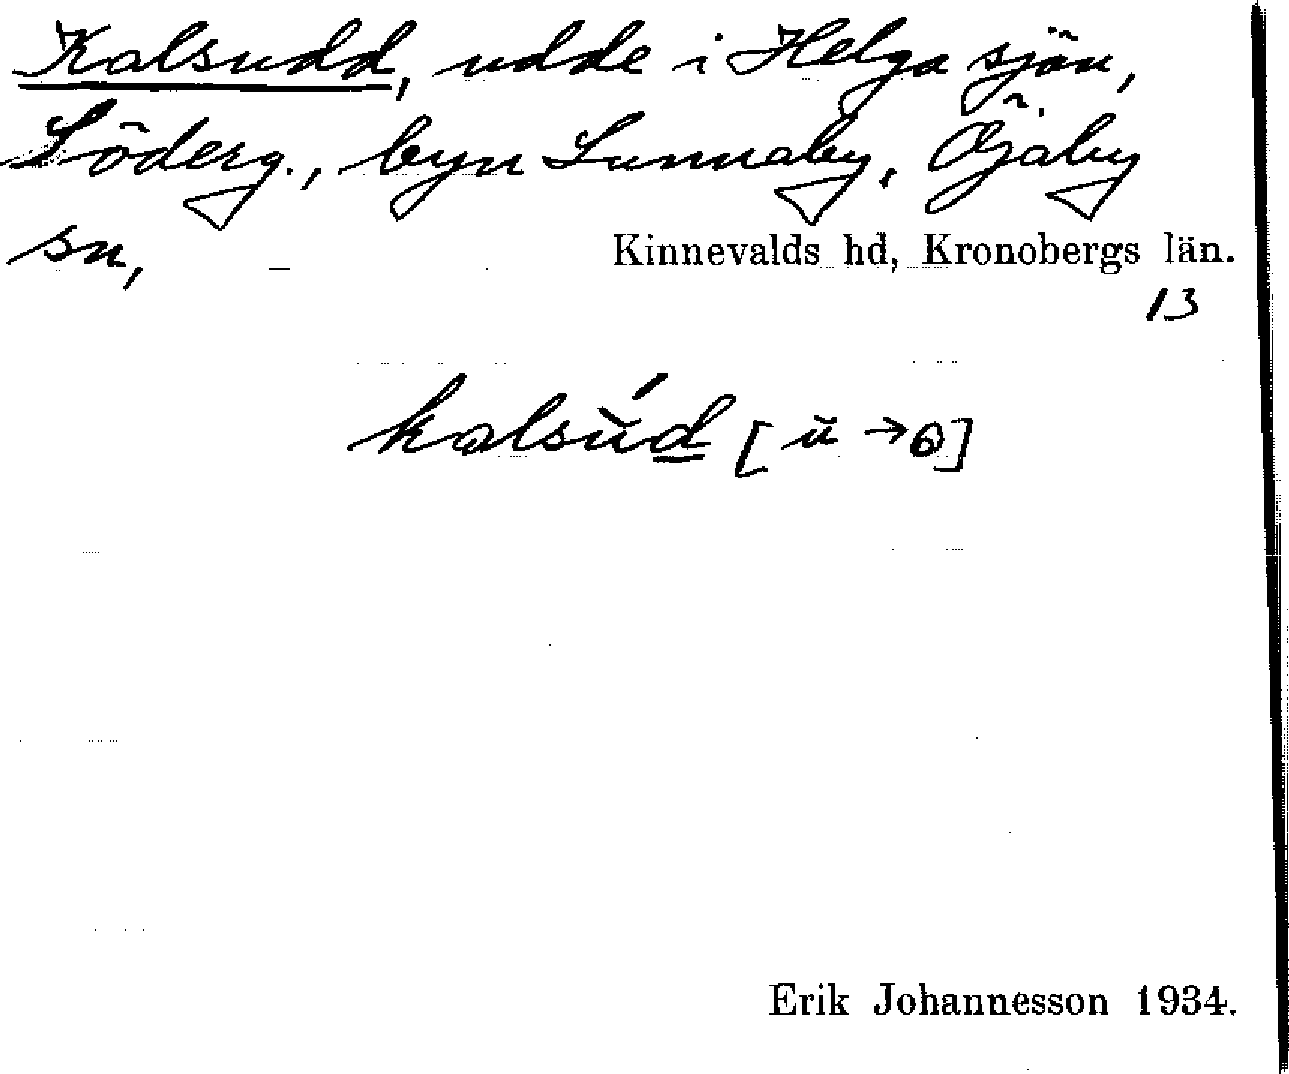 Kalsudd, udde i Helga sjön,
Söderg., byn Lunnaby, Öjaby
sn,
Kinnevalds hd, Kronobergs län.
13
kalsŭ́d [ŭ → ɵ]
Erik Johannesson 1934.